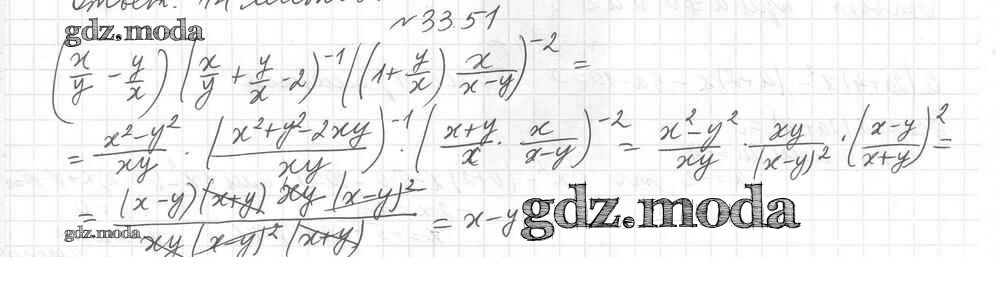 № 33.51
gdz.moda
(x/y − y/x) (x/y + y/x − 2)^−1 ((1 + y/x) x/(x−y))^−2 =
= (x²−y²)/xy · ((x²+y²−2xy)/xy)^−1 · ((x+y)/x · x/(x−y))^−2 = (x²−y²)/xy · xy/(x−y)² · ((x−y)/(x+y))² =
= (x−y)(x+y) xy (x−y)² / xy (x−y)² (x+y) = x−y
gdz.moda
gdz.moda